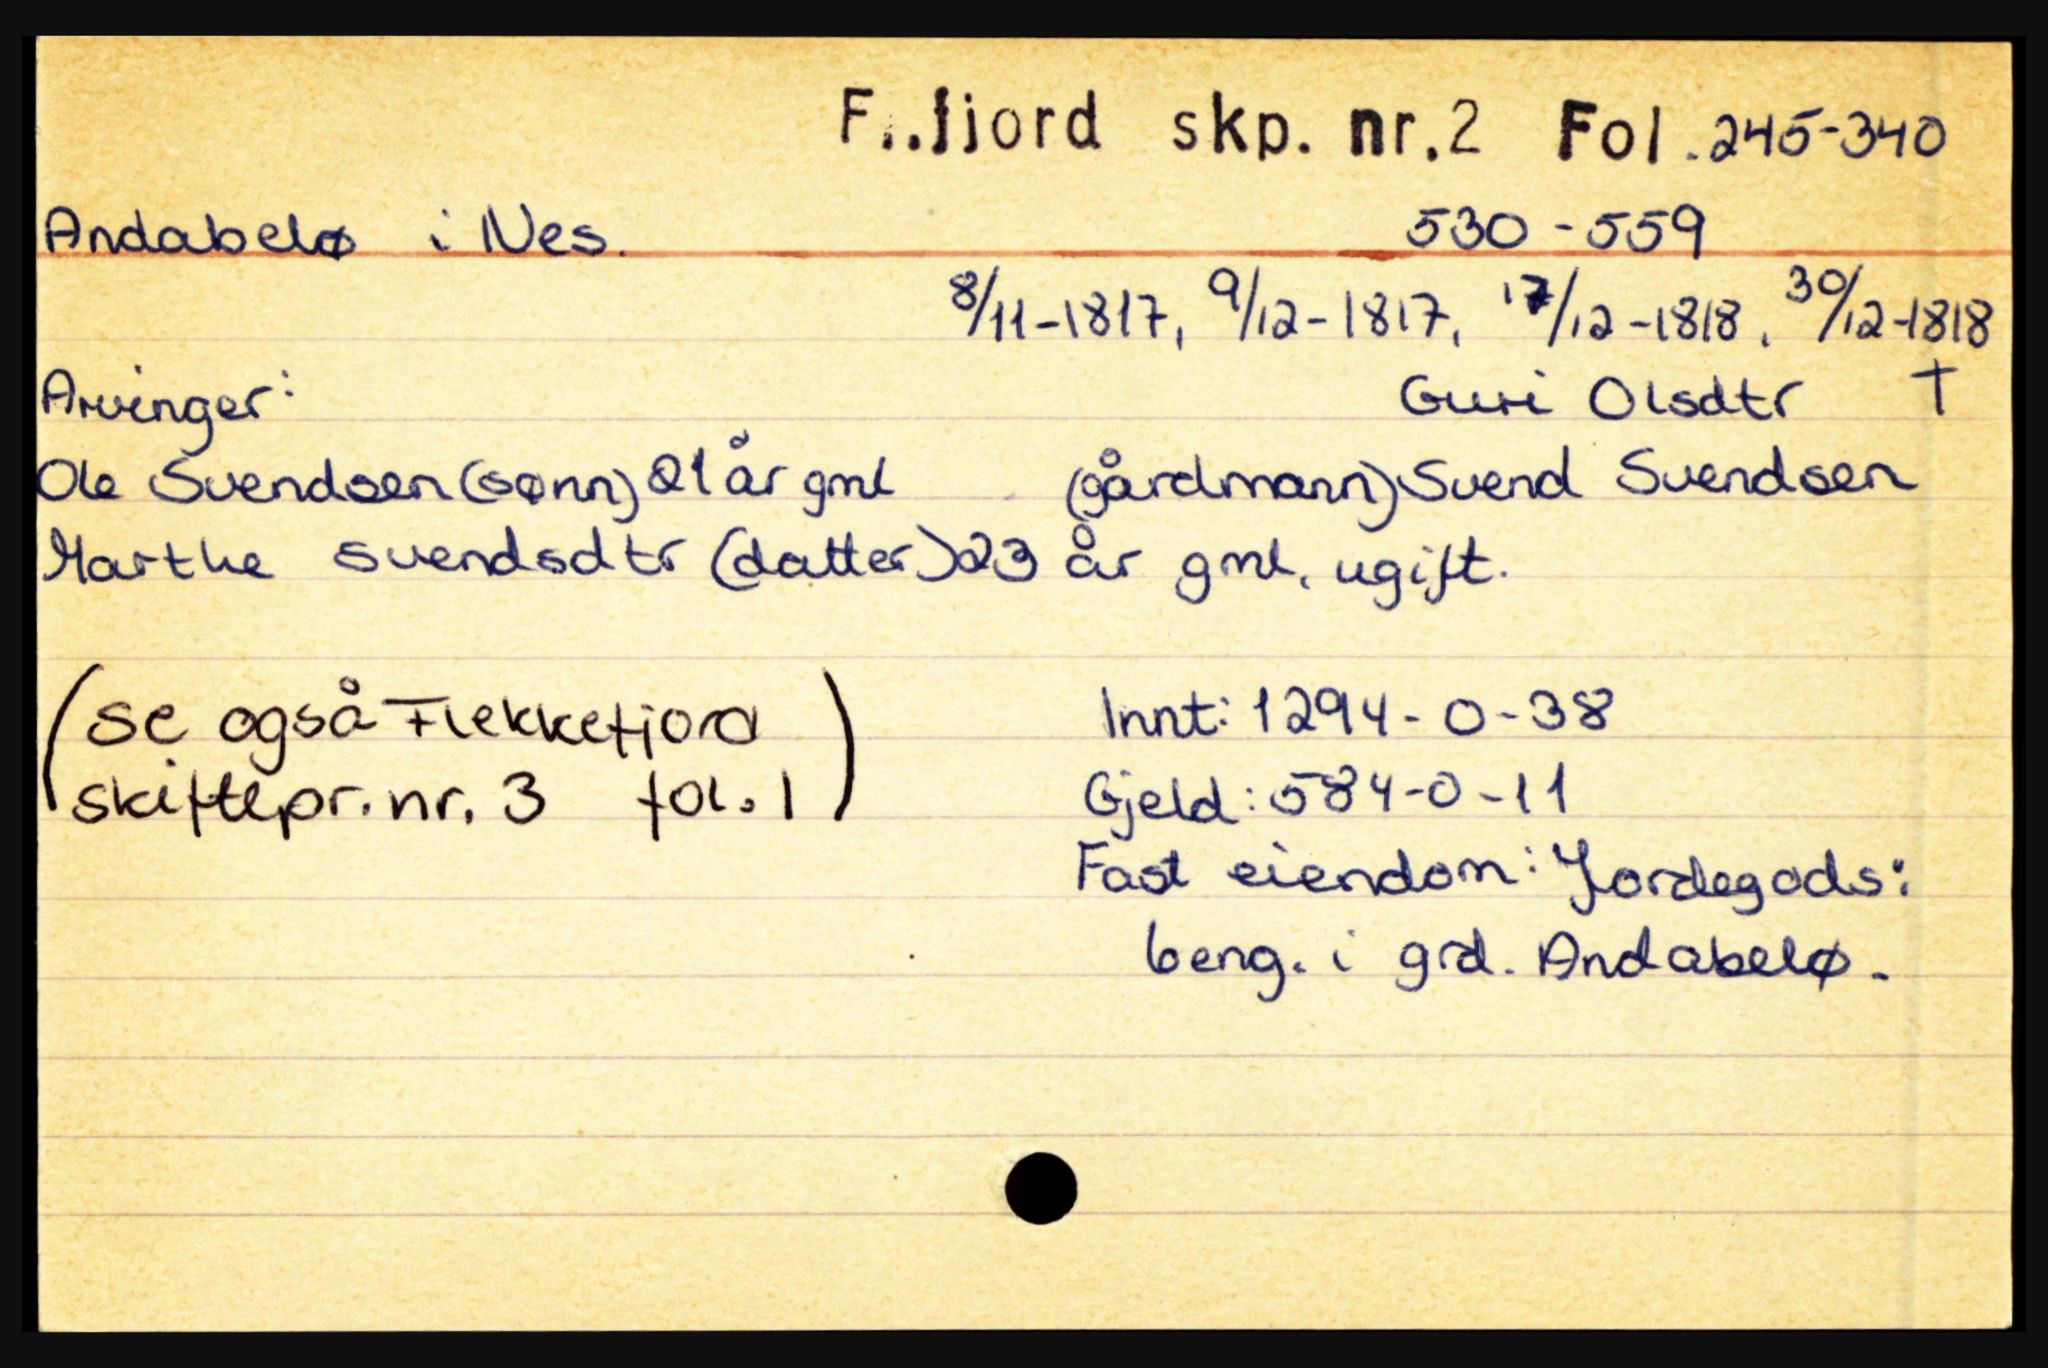 F..fjord skp. nr. 2 Fol. 245-340
Andabelø i Nes. 530-559
8/11-1817, 9/12-1817, 17/12-1818, 30/12-1818
Arvinger: Guri Olsdtr †
Ole Svendsen (sønn) 21 år gml (gårdmann) Svend Svendsen
Marthe Svendsdtr (datter) 23 år gml, ugift.
(se også Flekkefjord
skiftepr. nr. 3 fol. 1)
Innt: 1294-0-38
Gjeld: 584-0-11
Fast eiendom: Jordegods:
beng. i grd. Andabelø.